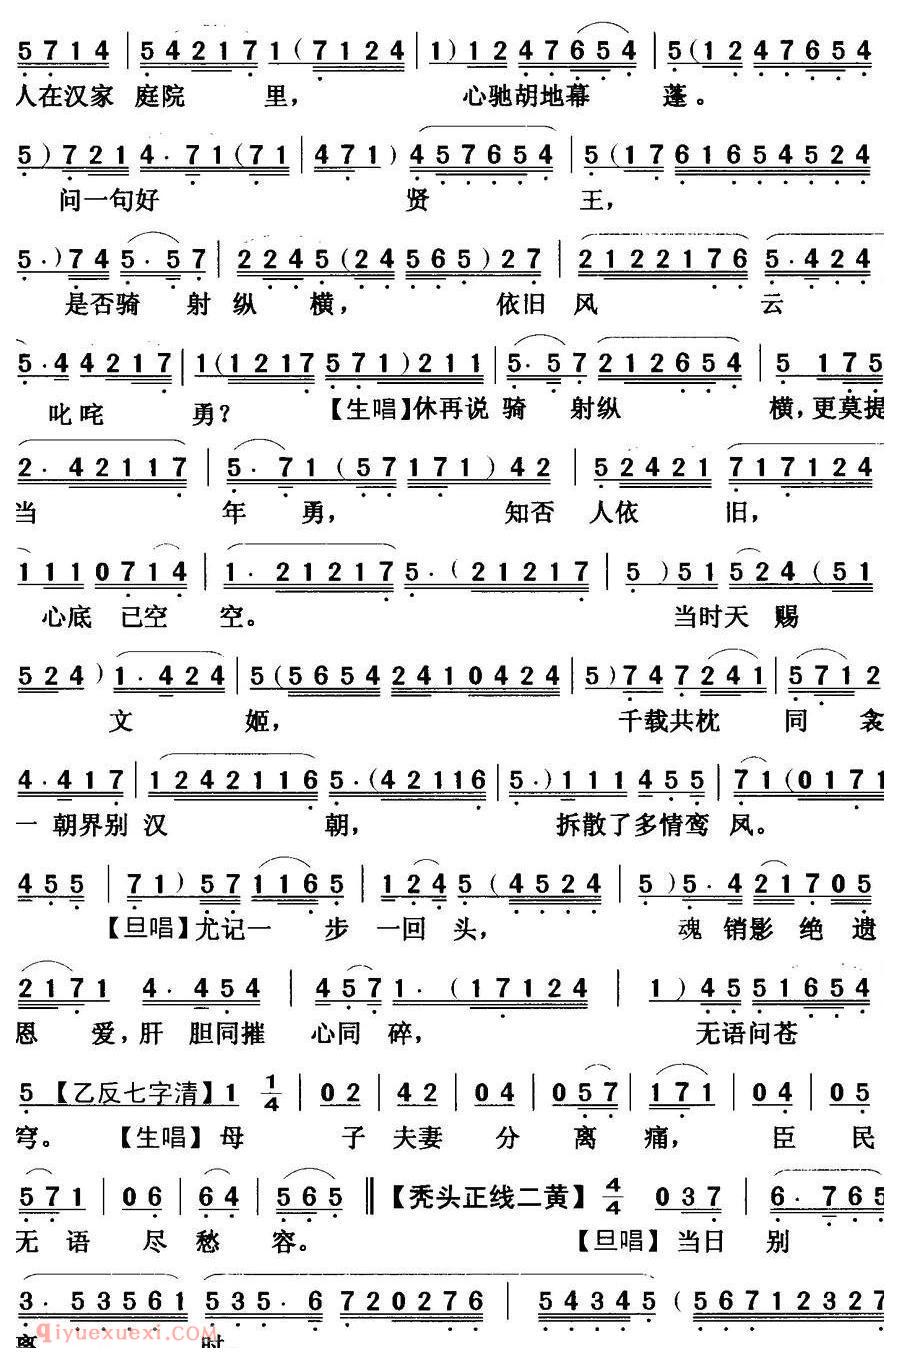 5 7 1 4 | 5 4 2 1 7 1 ( 7 1 2 4 | 1 ) 1 2 4 7 6 5 4 | 5 ( 1 2 4 7 6 5 4
人在汉家 庭院 里， 心驰胡地幕 蓬。
5 ) 7 2 1 4 · 7 1 ( 7 1 | 4 7 1 ) 4 5 7 6 5 4 | 5 ( 1 7 6 1 6 5 4 5 2 4
问一句好 贤 王，
5 · ) 7 4 5 · 5 7 | 2 2 4 5 ( 2 4 5 6 5 ) 2 7 | 2 1 2 2 1 7 6 5 · 4 2 4
是否骑 射 纵 横， 依旧 风 云
5 · 4 4 2 1 7 | 1 ( 1 2 1 7 5 7 1 ) 2 1 1 | 5 · 5 7 2 1 2 6 5 4 | 5 1 7 5
叱咤 勇？ 【生唱】休再说 骑 射纵 横，更莫提
2 · 4 2 1 1 7 | 5 · 7 1 ( 5 7 1 7 1 ) 4 2 | 5 2 4 2 1 7 1 7 1 2 4
当 年 勇， 知否 人依 旧，
1 1 1 0 7 1 4 | 1 · 2 1 2 1 7 5 · ( 2 1 2 1 7 | 5 ) 5 1 5 2 4 ( 5 1
心底 已空 空。 当时天 赐
5 2 4 ) 1 · 4 2 4 | 5 ( 5 6 5 4 2 4 1 0 4 2 4 | 5 ) 7 4 7 2 4 1 | 5 7 1 2
文 姬， 千载共枕 同 衾
4 · 4 1 7 | 1 2 4 2 1 1 6 5 · ( 4 2 1 1 6 | 5 · ) 1 1 1 4 5 5 | 7 1 ( 0 1 7 1
一 朝界别 汉 朝， 拆散了多情鸾 凤。
4 5 5 | 7 1 ) 5 7 1 1 6 5 | 1 2 4 5 ( 4 5 2 4 | 5 ) 5 · 4 2 1 7 0 5
【旦唱】尤记一 步 一回 头， 魂 销影 绝 遗
2 1 7 1 4 · 4 5 4 | 4 5 7 1 · ( 1 7 1 2 4 | 1 ) 4 5 5 1 6 5 4
恩 爱，肝 胆同摧 心同 碎， 无语问苍
5 【乙反七字清】1 1/4 | 0 2 | 4 2 | 0 4 | 0 5 7 | 1 7 1 | 0 4 | 0 5
穹。 【生唱】母 子 夫妻 分 离 痛， 臣 民
5 7 1 | 0 6 | 6 4 | 5 6 5 ‖【秃头正线二黄】4/4 0 3 7 | 6 · 7 6 5
无 语 尽 愁 容。 【旦唱】当日 别
3 · 5 3 5 6 1 5 3 5 · 6 7 2 0 2 7 6 | 5 4 3 4 5 ( 5 6 7 1 2 3 2 7
离 时
qiyuexuexi.com